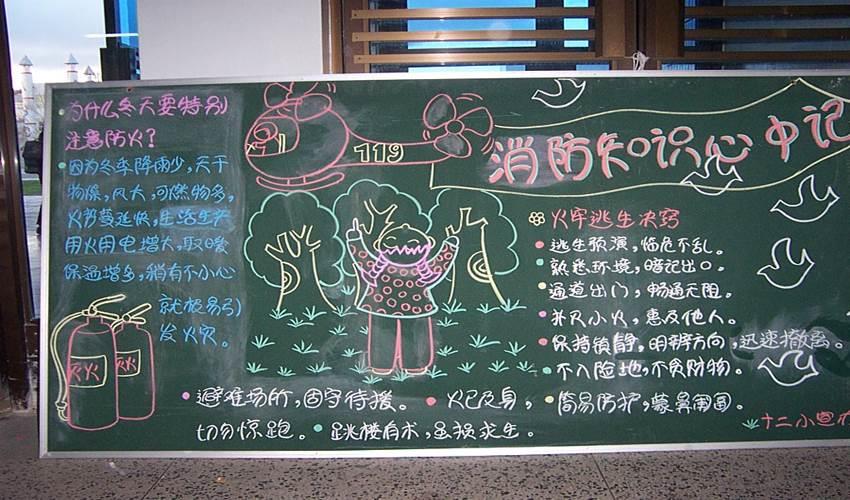 为什么冬天要特别
注意防火？
因为冬季降雨少，天干
物燥，风大，可燃物多，
火势蔓延快，生活生产
用火用电增大，取暖
保温增多，稍有不小心
就极易引
发火灾。
灭火
灭火
119
消防知识心中记
火牢逃生决窍
逃生预演，临危不乱。
熟悉环境，暗记出口。
通道出门，畅通无阻。
扑灭小火，惠及他人。
保持镇静，明辨方向，迅速撤离。
不入险地，不贪财物。
简易防护，蒙鼻匍匐。
避难场所，固守待援。
火已及身，
切勿惊跑。
跳楼有术，虽损求生。
十二小